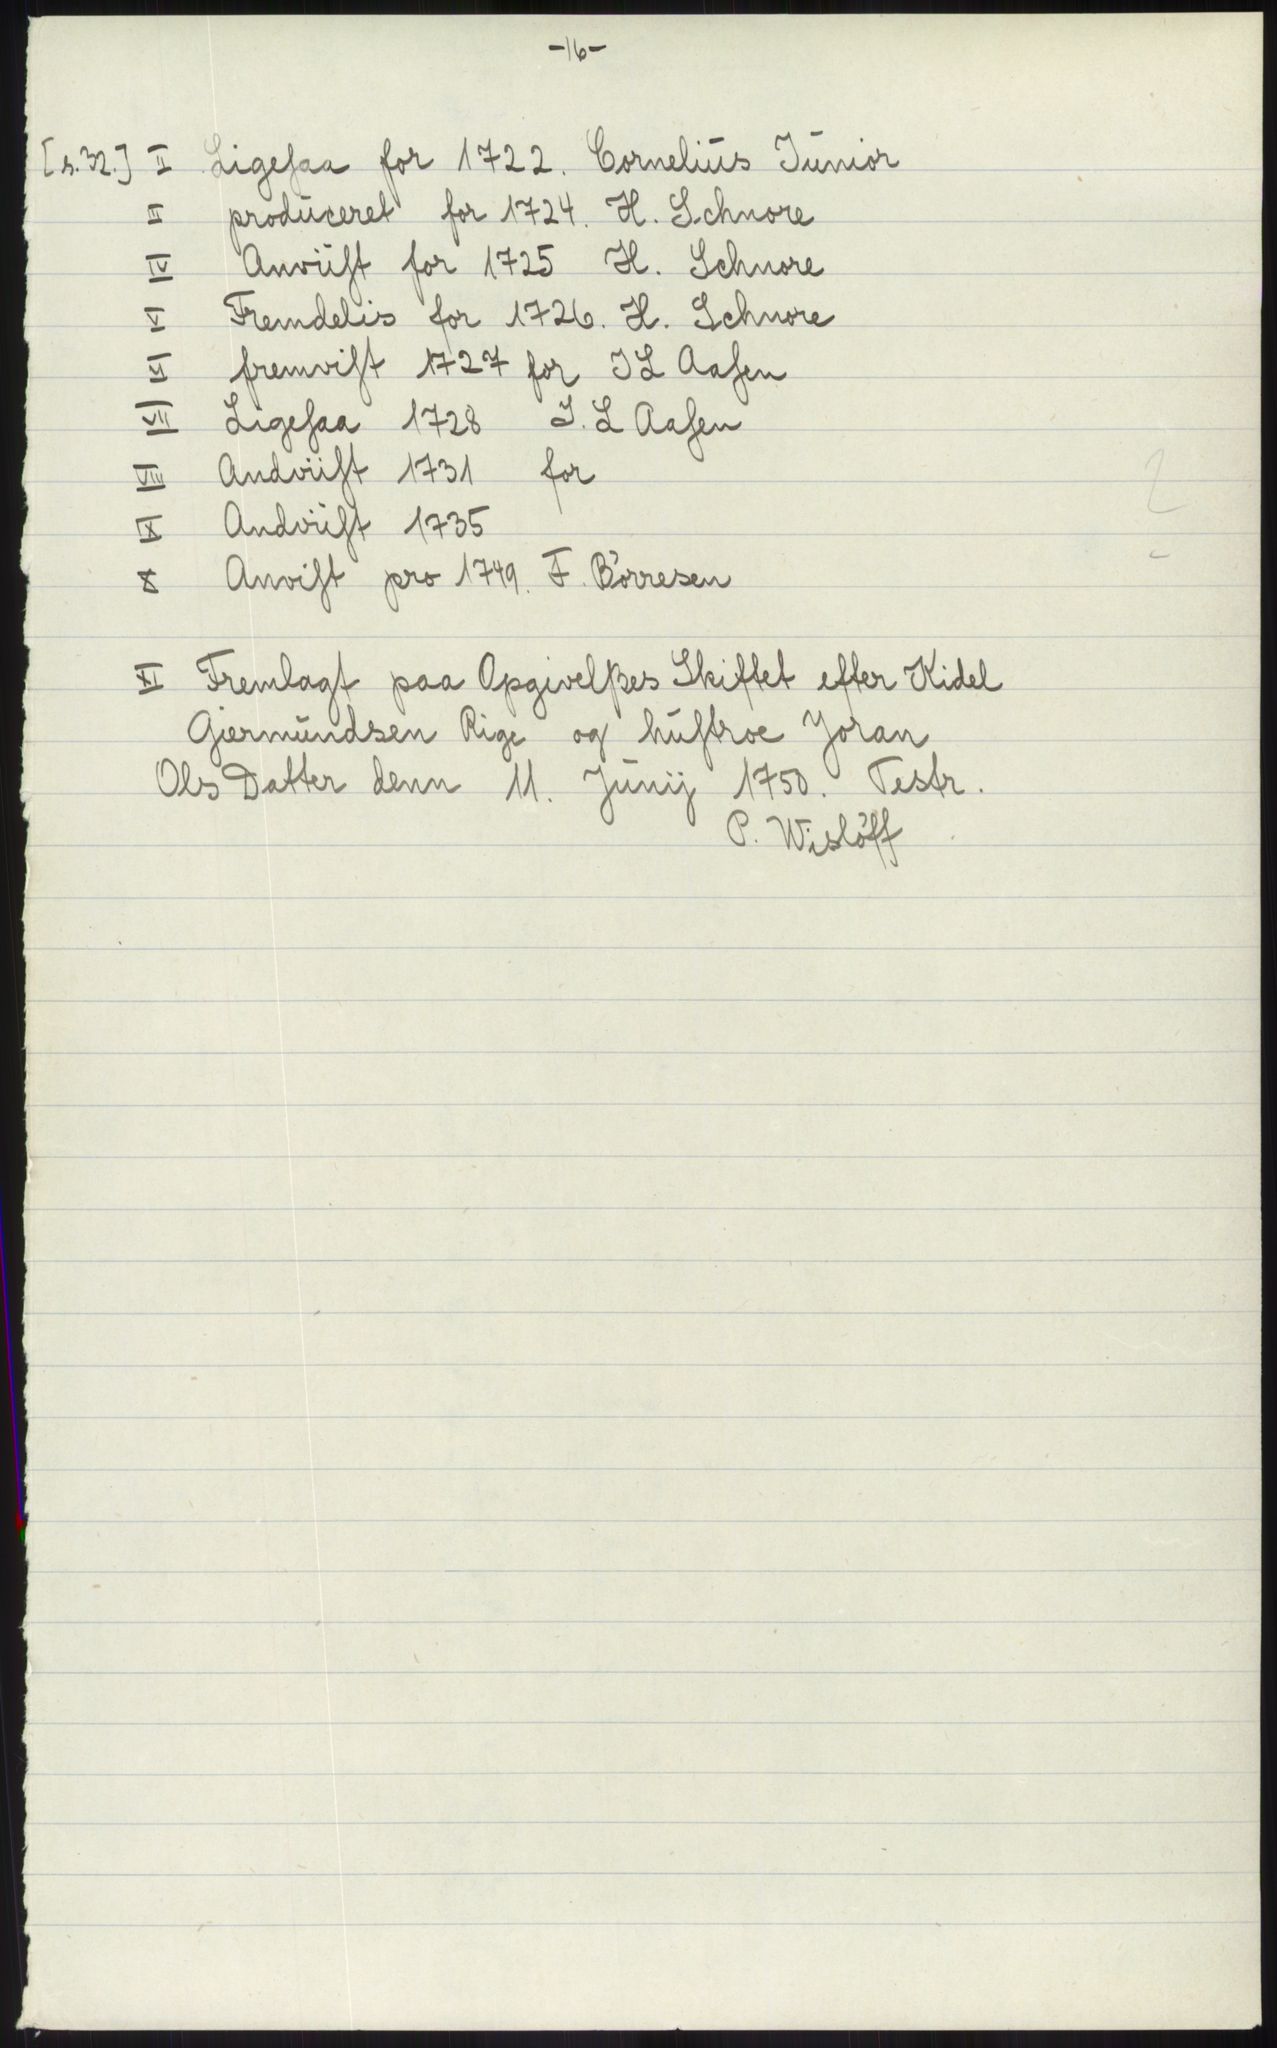 -16-
[s.32.] II Ligesaa for 1722. Cornelius Junior
III produceret for 1724. H. Schnore
IV Anviist for 1725 H. Schnore
V Fremdelis for 1726. H. Schnore
VI fremvist 1727 for J L Aasen
VII Ligesaa 1728 J. L Aasen
VIII Andviist 1731 for
IX Andviist 1735
X Anvist pro 1749. F. Börresen
XI Fremlagt paa Opgivelßes Skiftet efter Kidel
Giermundsen Rige og hustroe Joran
Ols Datter denn 11. Junij 1750. Testr.
P. Wislöff